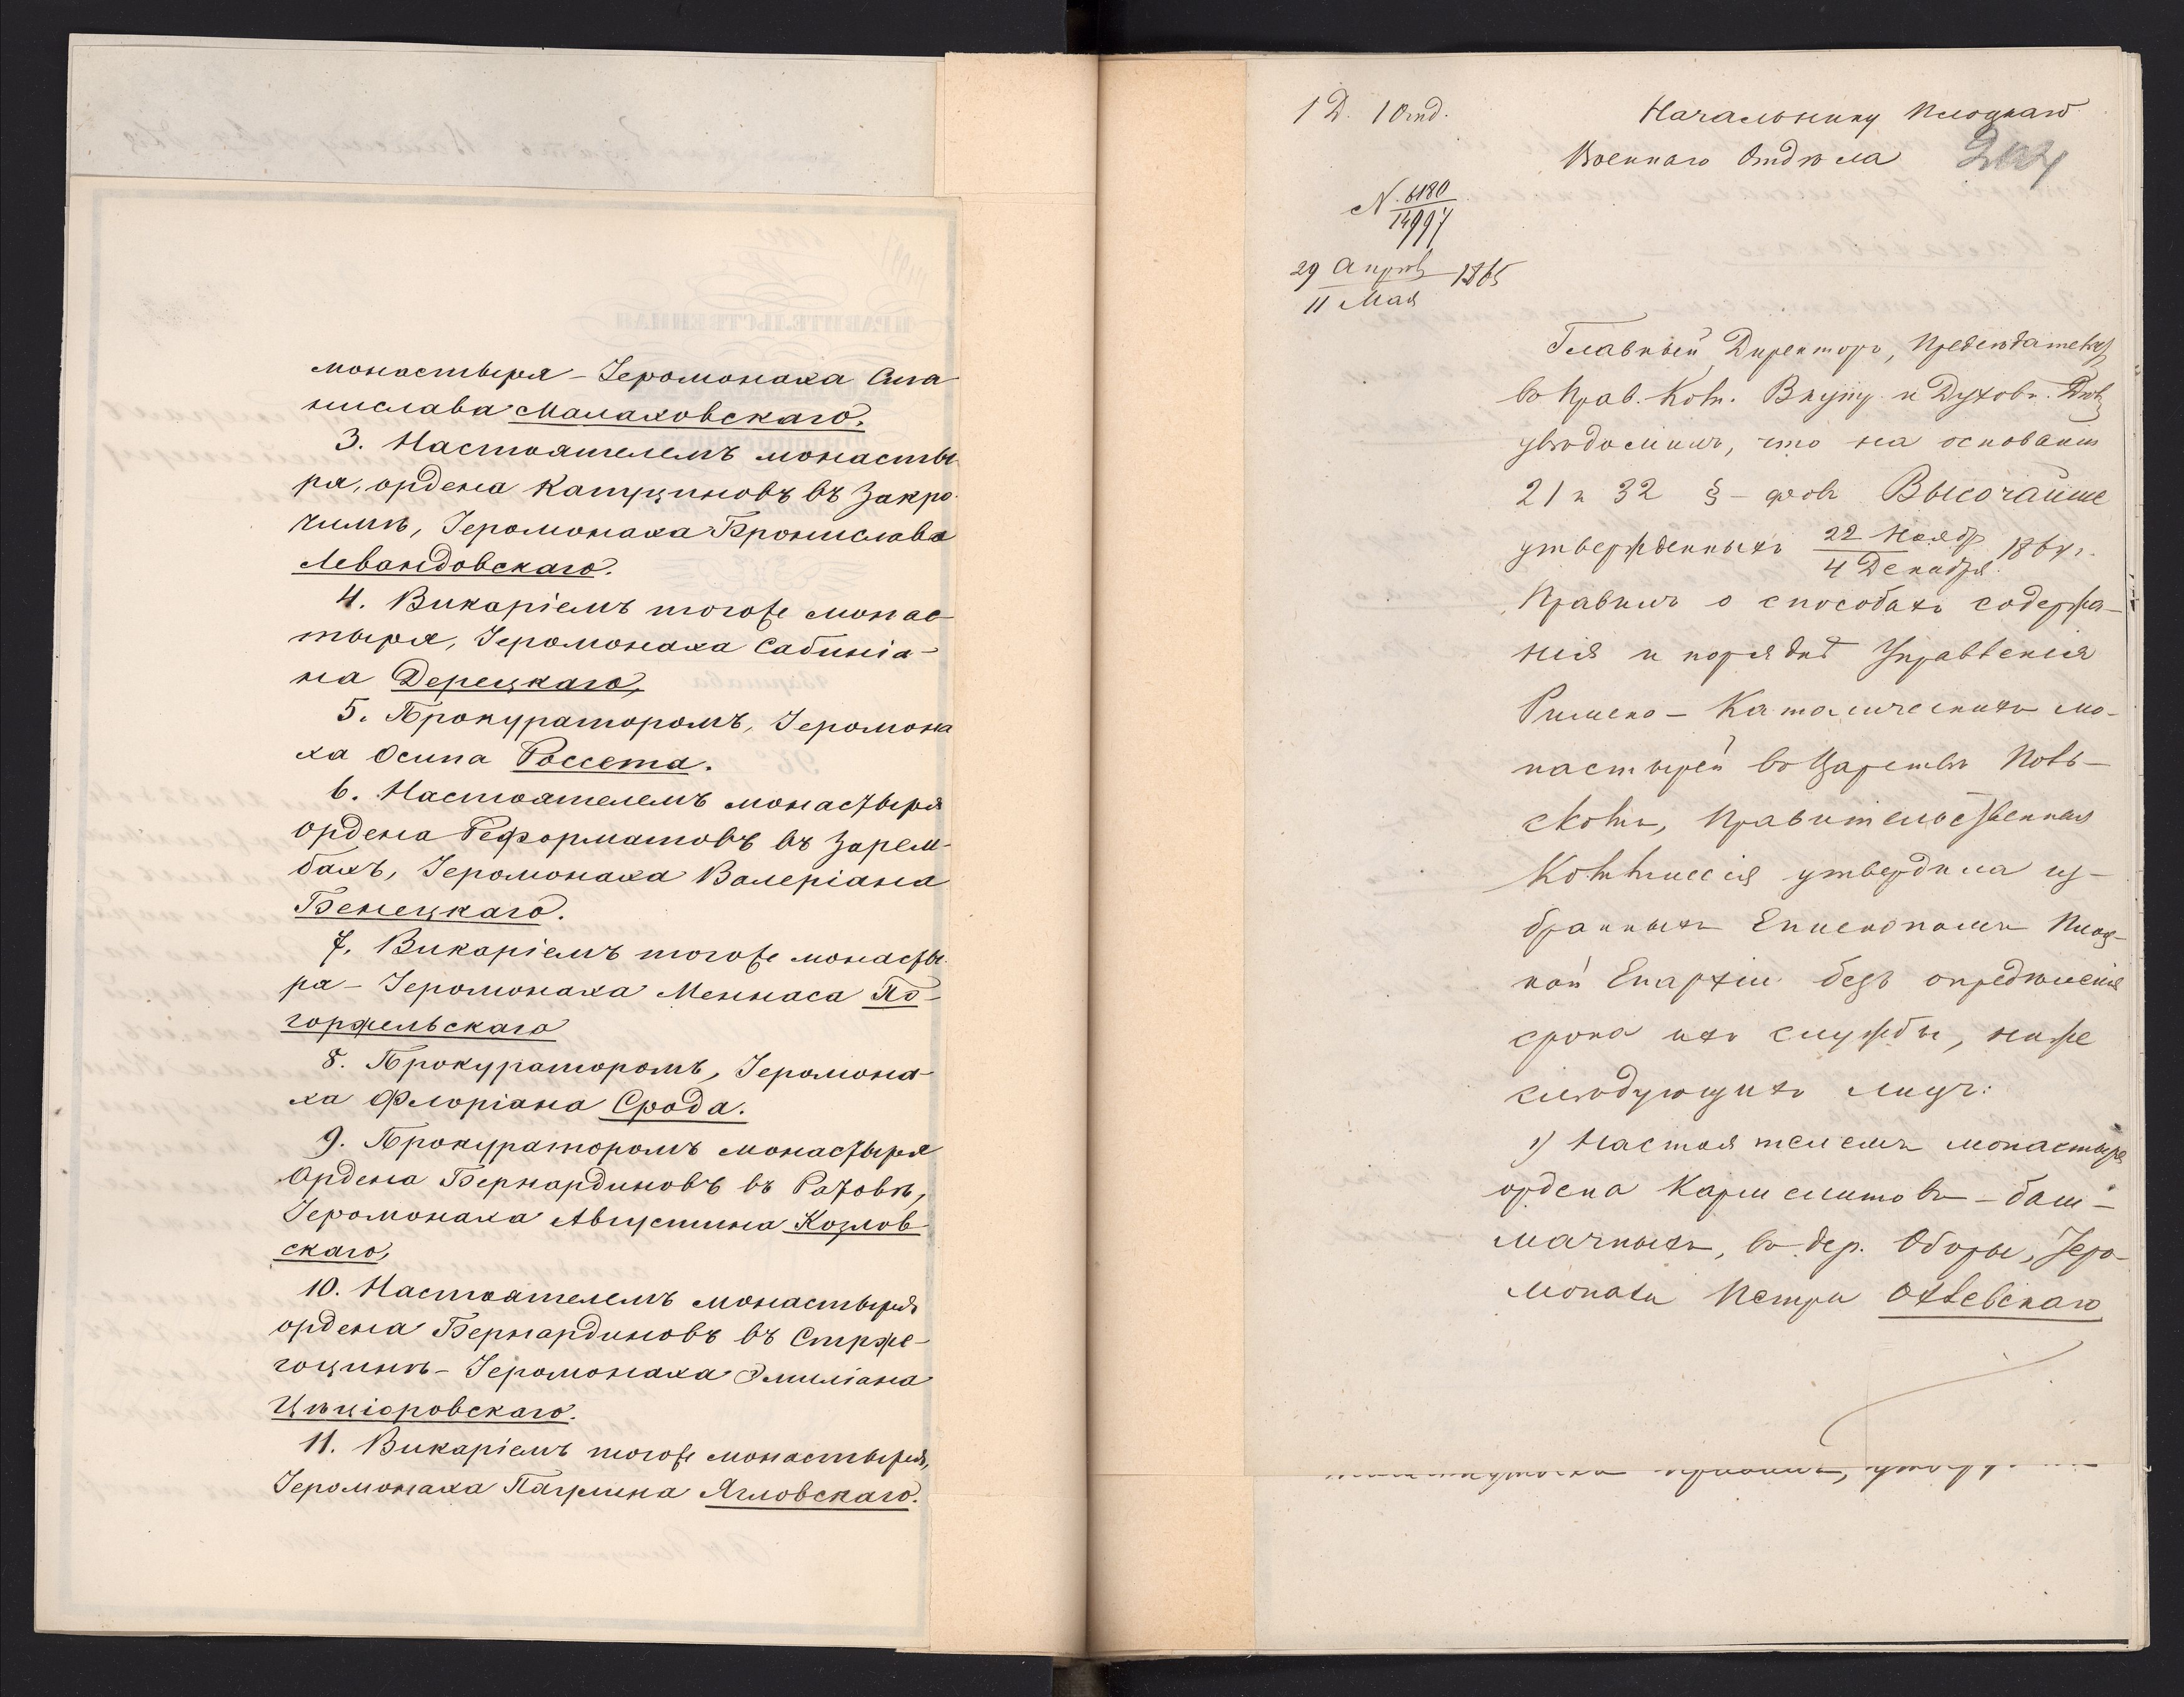 монастыря – Іеромонаха Ста
нислава Малаховскаго.
3. Настоятелемъ монасты
ря, ордена Капуциновъ въ Закро-
чимѣ, Іеромонаха Бронислава
Левандовскаго.
4. Викаріемъ тогоже монас
тыря, Іеромонаха Сабиніа-
на Дерецкаго,
5. Прокураторомъ, Іеромона
ха Осипа Россета.
6. Настоятелемъ монастыря
ордена Реформатовъ въ Зарем-
бахъ, Іеромонаха Валеріана
Бенецкаго.
7. Викаріемъ тогоже монасты-
ря – Іеромонаха Меннаса По-
горжельскаго
8. Прокураторомъ, Іеромона-
ха Флоріана Срода.
9. Прокураторомъ монастыря
Ордена Бернардиновъ въ Ратовѣ,
Іеромонаха Августина Козлов
скаго,
10. Настоятелемъ монастыря
ордена Бернардиновъ въ Стрже-
гоцинѣ – Іеромонаха Эмиліана
Цѣціоровскаго.
11. Викаріемъ тогоже монастыря,
Іеромонаха Паулина Ягловскаго.
1 Д. 1 Отд.
Начальнику Плоцкаго
Военнаго Отдѣла
N. 6180
14997
29 Апрѣл 1865
11 Мая
Главный Директоръ, Предсѣдательств
въ Прав. Ком. Внутр. и Духовн. Дѣлъ
увѣдомилъ, что на основаніи
21 и 32 §-фовъ Высочайше
утвержденныхъ 22 Ноябр 1864 г.
4 Декабря
Правилъ о способахъ содержа-
нія и порядкѣ Управленія
Римско-Католическихъ мо-
настырей въ Царствѣ Поль-
скомъ, Правительственная
Коммиссія утвердила из-
бранныхъ Епископомъ Плоц-
кой Епархіи безъ опредѣленія
срока ихъ службы, ниже
слѣдующихъ лицъ:
1) Настоятелемъ монастыря
ордена Кармелитовъ-баш-
мачныхъ, въ дер. Оборы, Іеро-
монаха Петра Охлевскаго